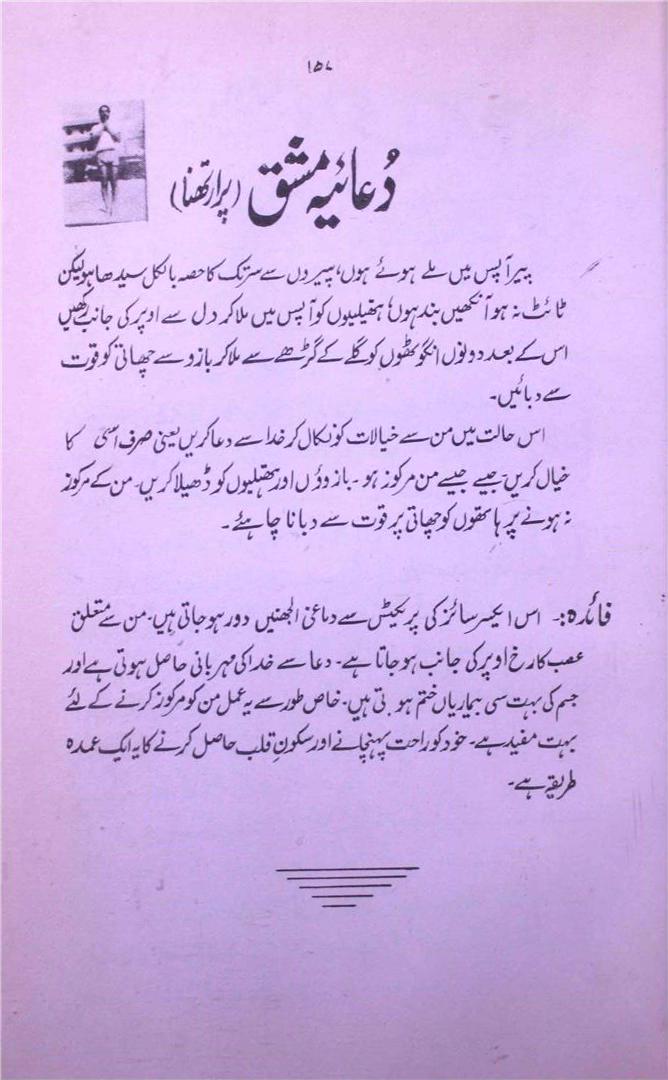 ۱۵۷
دُعائیہ مشق (پرارتھنا)
پیر آپس میں ملے ہوئے ہوں، پیروں سے سر تک کا حصہ بالکل سیدھا ہو لیکن
ٹائٹ نہ ہو آنکھیں بند ہوں، ہتھیلیوں کو آپس میں ملا کر دل سے اوپر کی جانب رکھیں
اس کے بعد دونوں انگوٹھوں کو گلے کے گڑھے سے ملا کر بازو سے چھاتی کو قوت
سے دبائیں۔
اس حالت میں من سے خیالات کو نکال کر خدا سے دعا کریں یعنی صرف اسی کا
خیال کریں۔ جیسے جیسے من مرکوز ہو۔ بازوؤں اور ہتھیلیوں کو ڈھیلا کریں۔ من کے مرکوز
نہ ہونے پر ہاتھوں کو چھاتی پر قوت سے دبانا چاہئے۔
فائدہ:۔ اس ایکسرسائز کی پریکٹس سے دماغی الجھنیں دور ہو جاتی ہیں۔ من سے متعلق
عصب کا رخ اوپر کی جانب ہو جاتا ہے۔ دعا سے خدا کی مہربانی حاصل ہوتی ہے اور
جسم کی بہت سی بیماریاں ختم ہوتی ہیں۔ خاص طور سے یہ عمل من کو مرکوز کرنے کے لئے
بہت مفید ہے۔ خود کو راحت پہنچانے اور سکونِ قلب حاصل کرنے کا یہ ایک عمدہ
طریقہ ہے۔